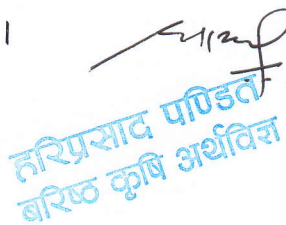 ।
हरिप्रसाद पण्डित
बरिष्ठ कृषि अर्थविज्ञ